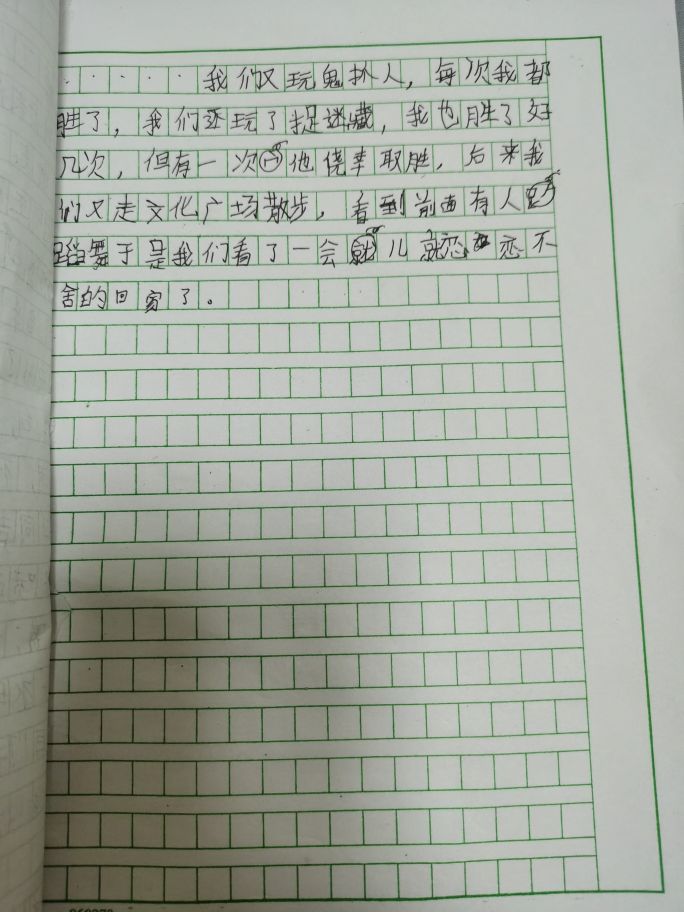 ·····我们又玩鬼抓人，每次我都
胜了，我们还玩了捉迷藏，我也胜了好
几次，但有一次他侥幸取胜，后来我
们又走文化广场散步，看到前面有人
蹈舞于是我们看了一会儿就恋恋不
舍的回家了。